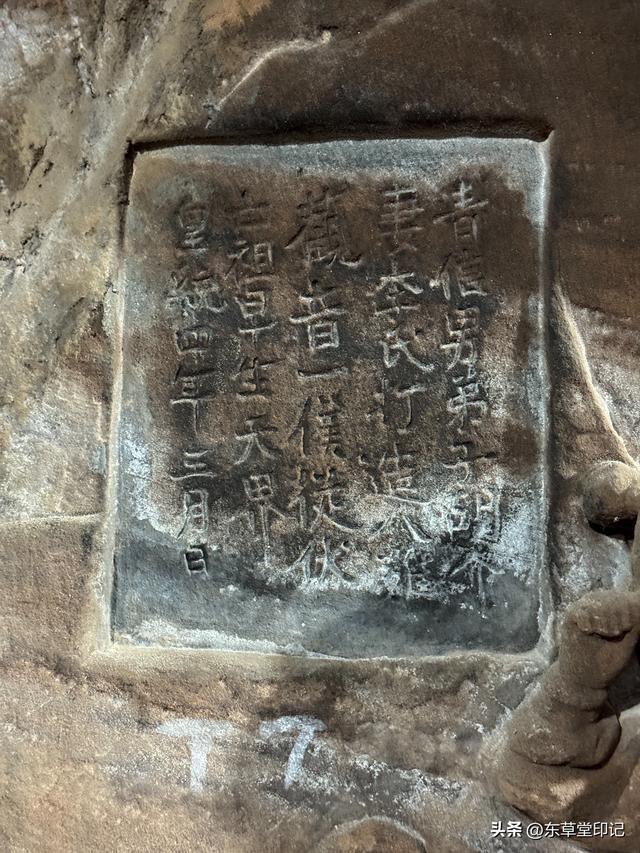 青信男弟子胡
妻李氏打造八難
觀音一僕從伏
亡祖早生天界
皇統四年三月日
T7
头条 @东草堂印记